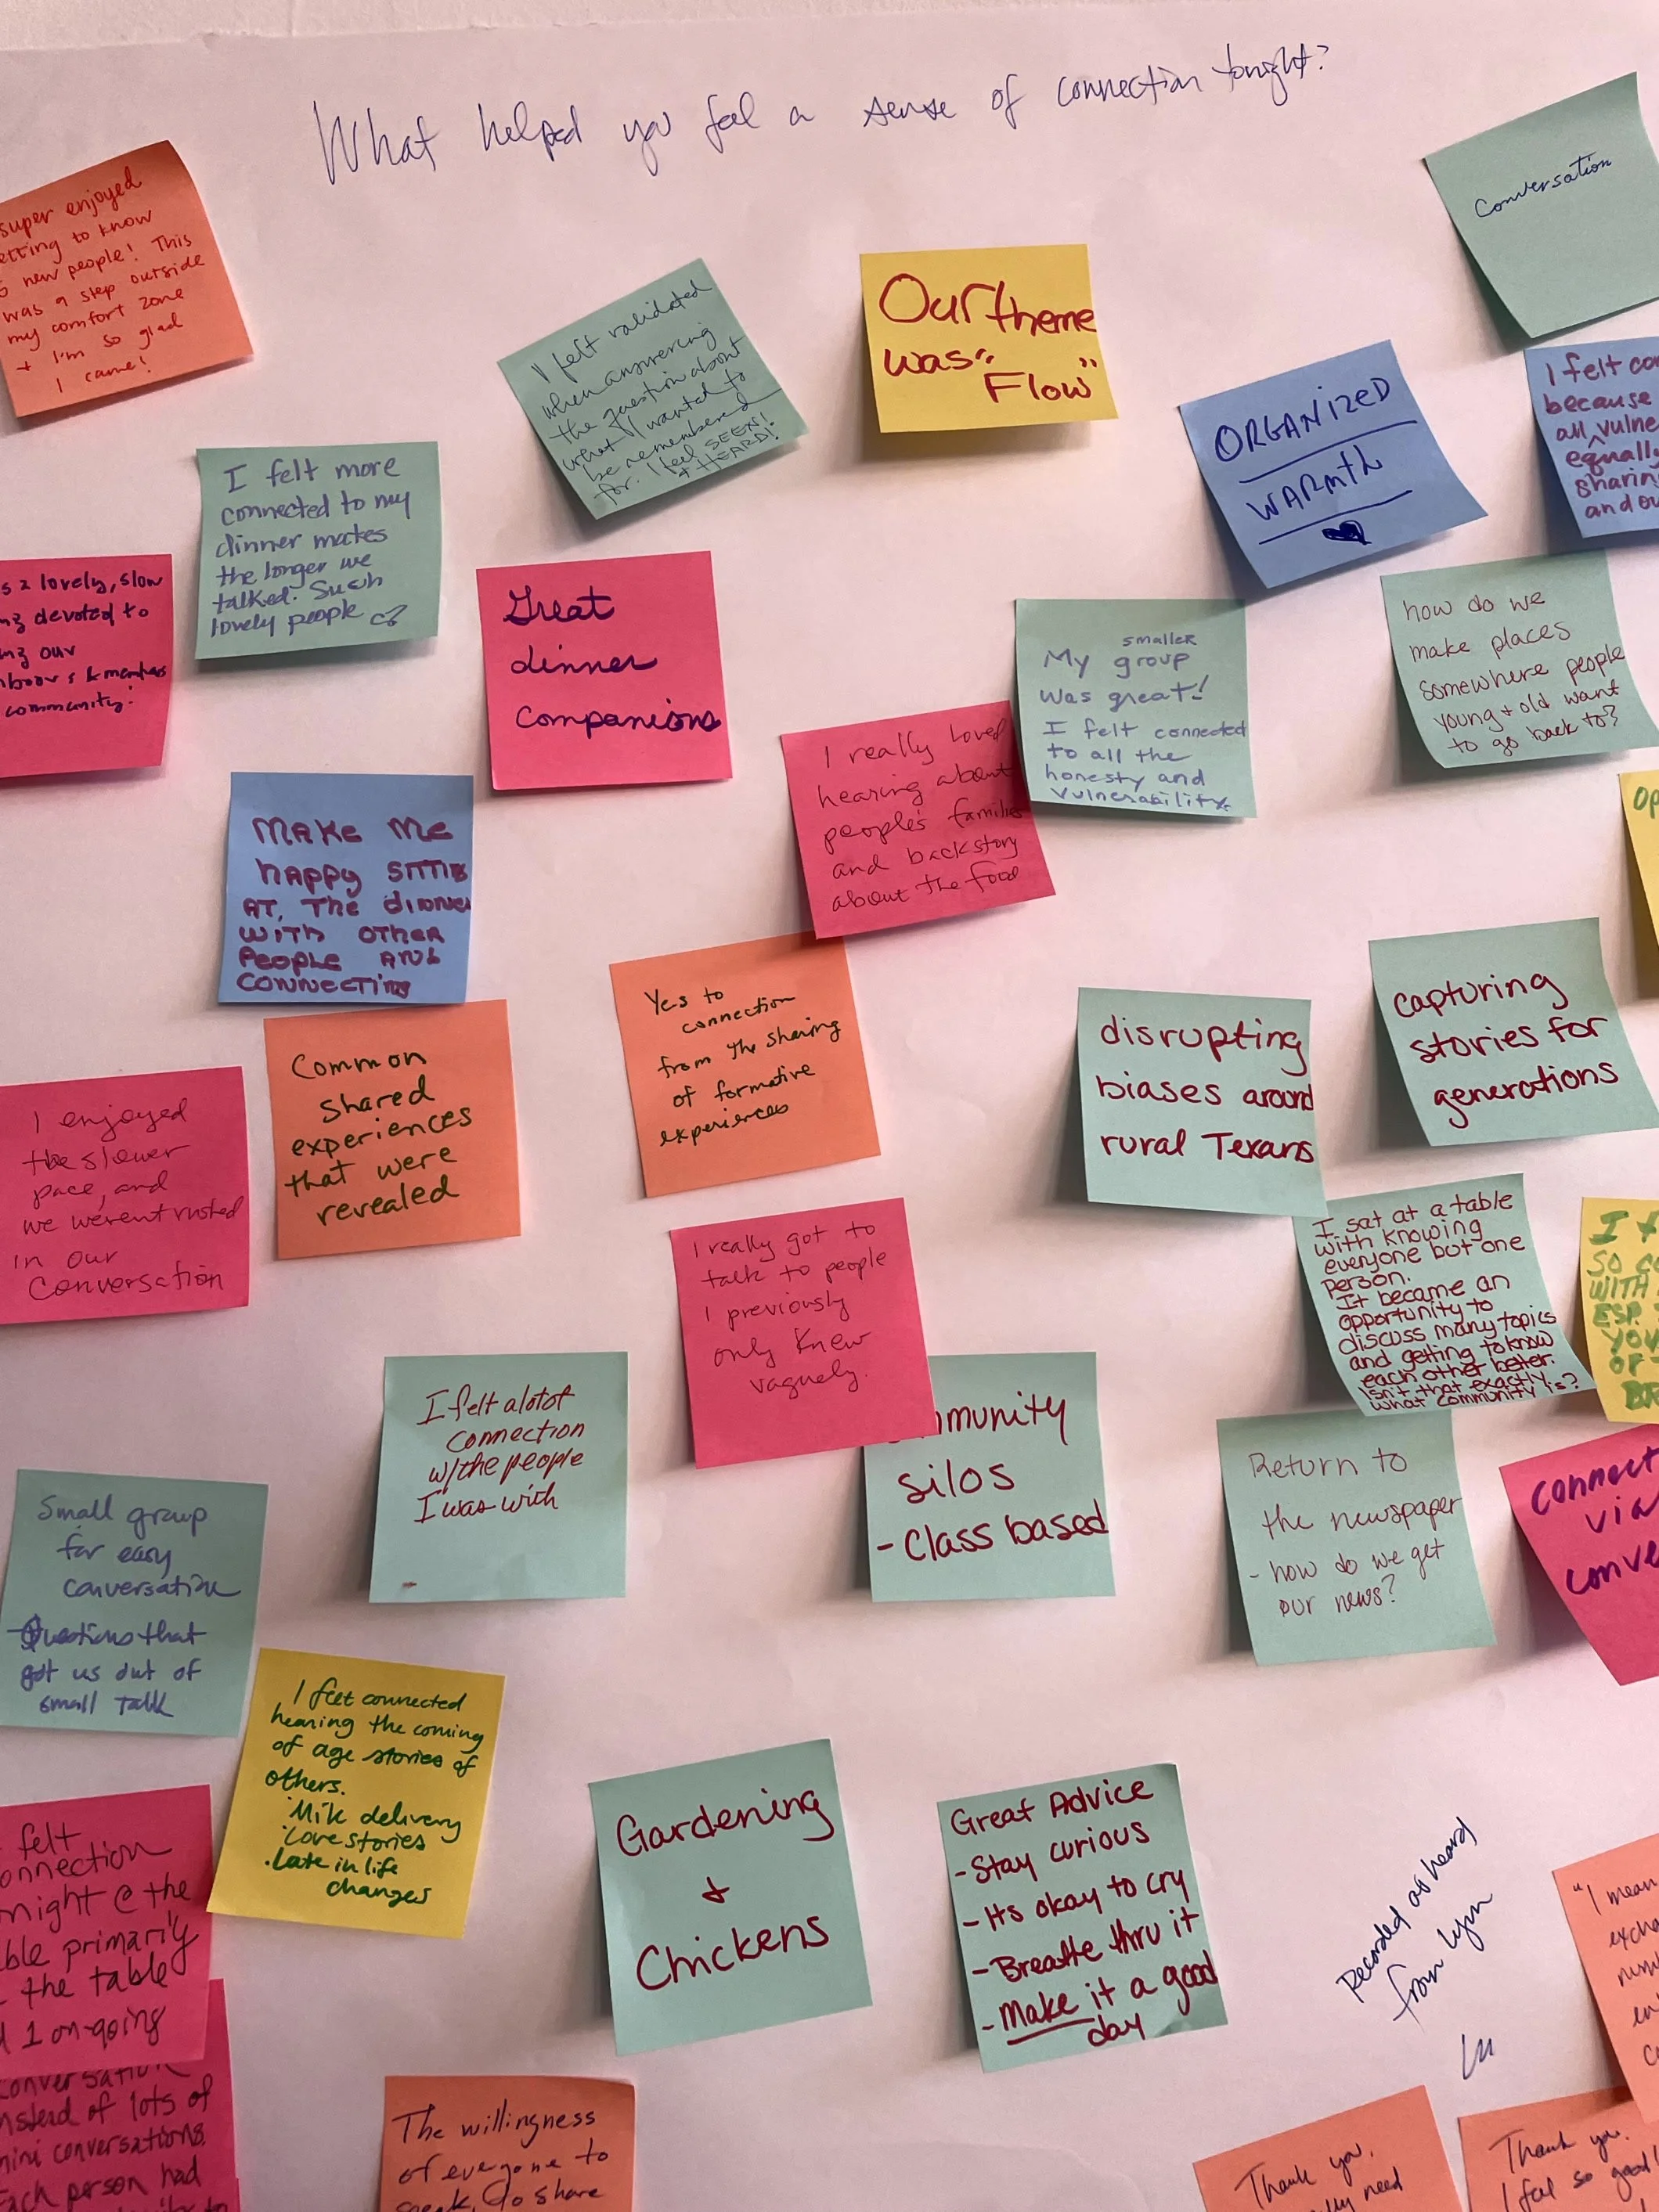 What helped you feel a sense of connection tonight?
super enjoyed
getting to know
new people! This
was a step outside
my comfort zone
+ I'm so glad
I came!
I felt validated
when answering
the question about
what I wanted to
be remembered
for. I feel SEEN!
+ HEARD!
Our theme
was "
Flow"
Conversation
ORGANIZED
WARMTH
I felt co
because
all vulne
equally
sharin
and ou
I felt more
connected to my
dinner mates
the longer we
talked. Such
lovely people
s a lovely, slow
ng devoted to
ng our
hbors & members
community!
Great
dinner
companions
smaller
My group
was great!
I felt connected
to all the
honesty and
vulnerability.
how do we
make places
somewhere people
young + old want
to go back to?
I really loved
hearing about
people's families
and backstory
about the food
MAKE ME
HAPPY SITTING
AT, THE DINNER
WITH OTHER
PEOPLE AND
CONNECTING
OP
Yes to
connection
from the sharing
of formative
experiences
disrupting
biases around
rural Texans
capturing
stories for
generations
Common
shared
experiences
that were
revealed
I enjoyed
the slower
pace, and
we weren't rushed
in our
conversation
I really got to
talk to people
I previously
only knew
vaguely.
I sat at a table
with knowing
everyone but one
person.
It became an
opportunity to
discuss many topics
and getting to know
each other better.
Isn't that exactly
what community is?
I f
SO CO
WITH
ESP.
YOU
OF
I felt alotof
connection
w/the people
I was with
mmunity
silos
- Class based
Return to
the newspaper
- how do we get
our news?
connect
via
conve
Small group
for easy
conversation
Questions that
got us out of
small talk
I feet connected
hearing the coming
of age stories of
others.
Milk delivery
Love stories
. Late in life
changes
Gardening
+
Chickens
Great Advice
- Stay curious
- Its okay to cry
- Breathe thru it
- Make it a good
day
Recorded as heard
from Lynn
felt
onnection
night @ the
ble primarily
the table
1 on-going
conversation
nstead of lots of
mini conversations.
Each person had
"I mean
excha
The willingness
of everyone to
speak, to share
Thank you,
need
Thank you.
I feel so good!